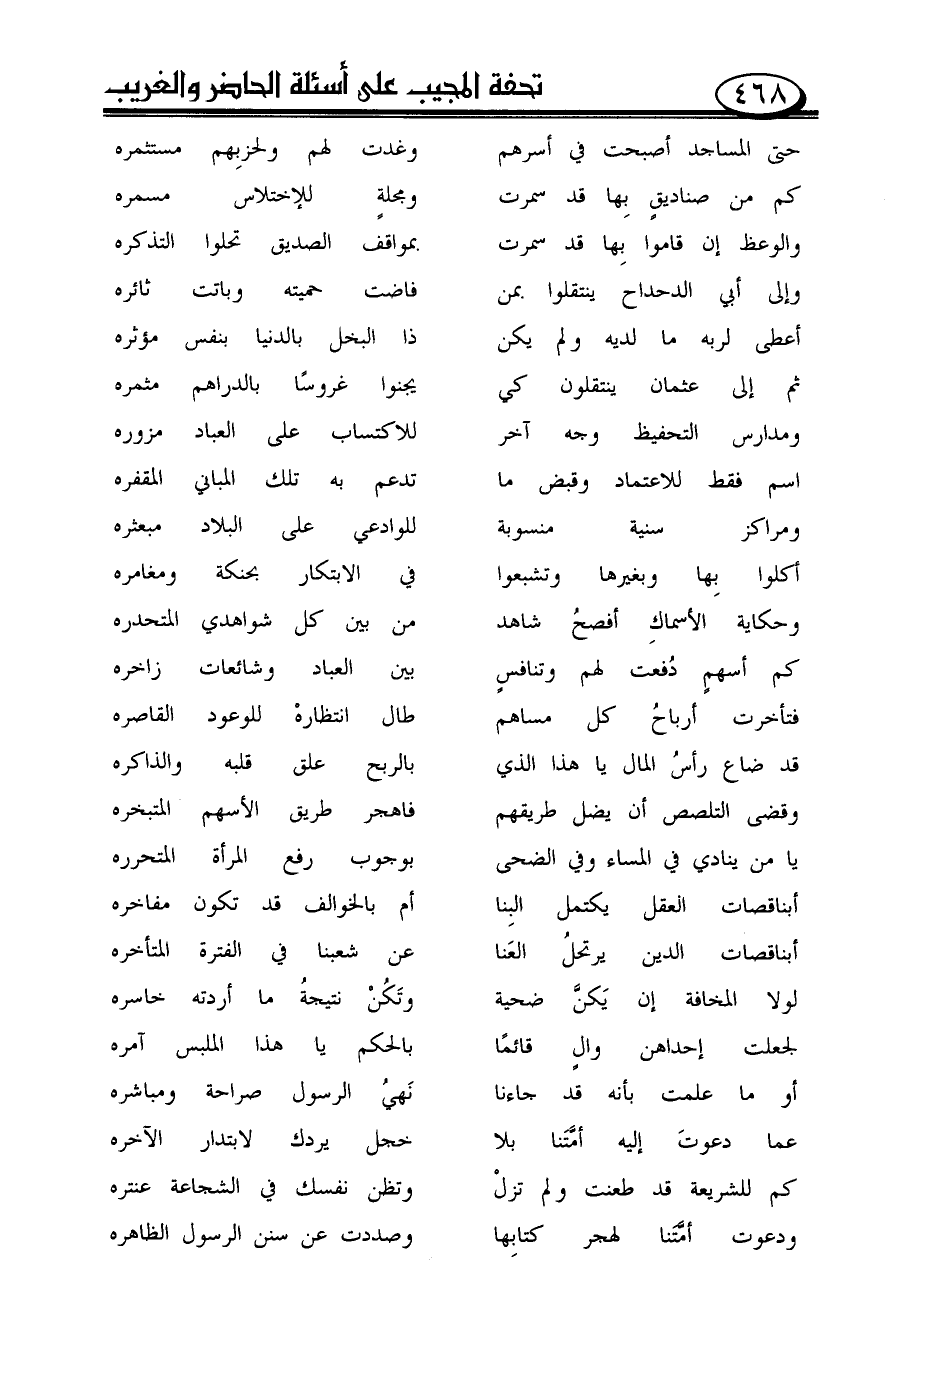 تحفة المجيب على أسئلة الحاضر والغريب ٤٦٨
حتى المساجد أصبحت في أسرهم وغدت لهم ولحزبِهم مستثمره
كم من صناديقٍ بِها قد سمرت ومجلةٍ للإختلاس مسمره
والوعظ إن قاموا بِها قد سمرت بمواقف الصديق تحلوا التذكره
وإلى أبي الدحداح ينتقلوا بمن فاضت حميته وباتت ثائره
أعطى لربه ما لديه ولم يكن ذا البخل بالدنيا بنفس مؤثره
ثم إلى عثمان ينتقلون كي يجنوا غروسًا بالدراهم مثمره
ومدارس التحفيظ وجه آخر للاكتساب على العباد مزوره
اسم فقط للاعتماد وقبض ما تدعم به تلك المباني المقفره
ومراكز سنية منسوبة للوادعي على البلاد مبعثره
أكلوا بِها وبغيرها وتشبعوا في الابتكار بحنكة ومغامره
وحكاية الأسماكِ أفصحُ شاهد من بين كل شواهدي المتحدره
كم أسهمٍ دُفعت لهم وتنافسٍ بين العباد وشائعات زاخره
فتأخرت أرباحُ كل مساهم طال انتظارهْ للوعود القاصره
قد ضاع رأسُ المال يا هذا الذي بالربح علق قلبه والذاكره
وقضى التلصص أن يضل طريقهم فاهجر طريق الأسهم المتبخره
يا من ينادي في المساء وفي الضحى بوجوب رفع المرأة المتحرره
أبناقصات العقل يكتمل البِنا أم بالخوالف قد تكون مفاخره
أبناقصات الدين يرتحلُ العَنا عن شعبنا في الفترة المتأخره
لولا المخافة إن يَكنَّ ضحية وتَكُنْ نتيجةُ ما أردته خاسره
لجعلت إحداهن والٍ قائمًا بالحكم يا هذا الملبس آمره
أو ما علمت بأنه قد جاءنا نَهيُ الرسول صراحة ومباشره
عما دعوتَ إليه أمَّتَنا بلا خجل يردك لابتدار الآخره
كم للشريعة قد طعنت ولم تزلْ وتظن نفسك في الشجاعة عنتره
ودعوت أمَّتَنا لهجر كتابِها وصددت عن سنن الرسول الظاهره